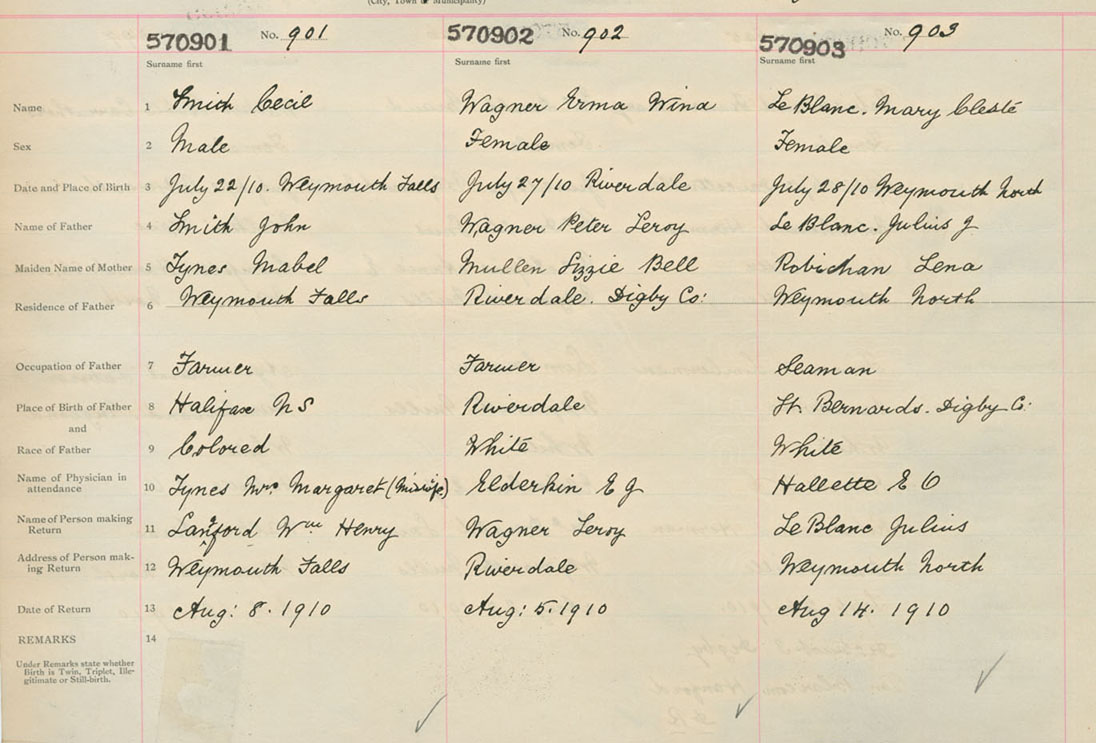 (City, Town or Municipality)
570901 No. 901 570902 No. 902 570903 No. 903
Surname first Surname first Surname first
Name 1 Smith Cecil Wagner Erma Wina Le Blanc. Mary Celeste
Sex 2 Male Female Female
Date and Place of Birth 3 July 22/10. Weymouth Falls July 27/10 Riverdale July 28/10 Weymouth North
Name of Father 4 Smith John Wagner Peter Leroy Le Blanc. Julius J
Maiden Name of Mother 5 Tynes Mabel Mullen Lizzie Bell Robichan Lena
Residence of Father 6 Weymouth Falls Riverdale. Digby Co: Weymouth North
Occupation of Father 7 Farmer Farmer Seaman
Place of Birth of Father 8 Halifax NS Riverdale St Bernards. Digby Co:
and
Race of Father 9 Colored White White
Name of Physician in
attendance 10 Tynes Mrs Margaret (Midwife) Elderkin E J Hallette E O
Name of Person making
Return 11 Langford Wm Henry Wagner Leroy Le Blanc Julius
Address of Person mak-
ing Return 12 Weymouth Falls Riverdale Weymouth North
Date of Return 13 Aug: 8. 1910 Aug: 5. 1910 Aug 14. 1910
REMARKS 14
Under Remarks state whether
Birth is Twin, Triplet, Ille-
gitimate or Still-birth.